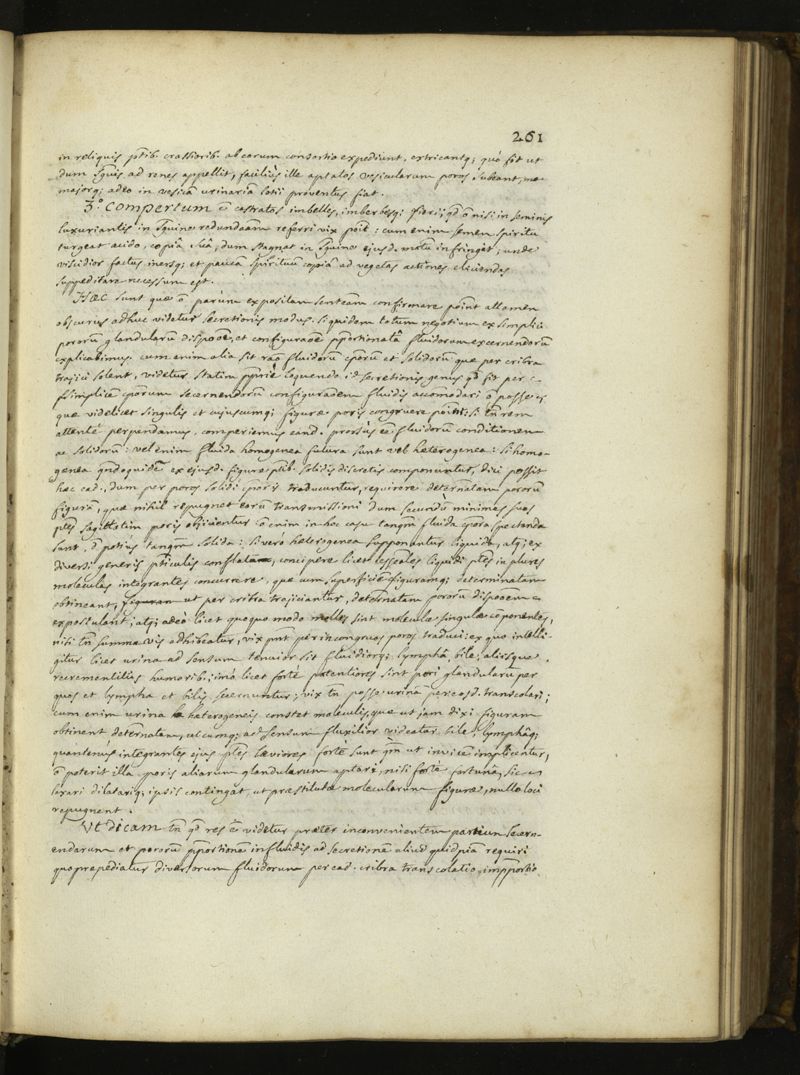 261
in reliquis ptib. crassiorib. ab eorum consortio expediunt, extricantq; quò fit ut
dum sguis ad renes appellit, faciliùs ille aptatos vesicularum poros subeant, ma-
majorq; adeo in vesicâ urinariâ lotii proventus fiat.
3.º Compertum ē castratos imbelles, imberbesq; fieri; qd ō nisi in seminis
luxuriantis in sguine redundaām referri vix poīe: cum enim semen spiritu
turgeat acido, copiâ suâ, dum stagnat in sguine ejusd. motū infringat; unde
viscidior factus inersq; et paucâ spirituū copiâ ad vegetas actiones eliciendas
suppeditare necessum est.
Hæc sunt quæ ō parùm expositam sententiam confirmare possint attamen
obscurus adhuc videtur secretionis modus. siquidem totum negotium ex simplici
pororū glandularū disposoē, et configuraoē pportionatâ fluidorum excernendorū
explicabimus. cum enim alia sit raō fluidorū cporū et solidorū quæ per cribra
trajici solent, videtur statim ppriè loquendo id secretionis genus qd fit per
simplicē cporum secernendorū configuraōem fluidis accomodari ō posse
quæ videlicet singulis et cujuscumq; figuræ poris congruere possint: si tn rem
attentè perpendamus, comperiemus eand. prorsùs eē fluidorū conditionem
ac solidorū: vel enim fluida homogenea futura sunt vel heterogenea: si homo-
genea qndoquidē ex ejusd. figuræ ptib. solidis discretis componuntur, dici possit
hæc ead., dum per poros solidi cporis traducuntur, requirere determatam pororū
figurā, quæ nihil repugnet eorū transmissioni dum secundū minimas suas
ptes sagittatim poris objiciuntur ō enim in hoc casu tanqm fluida cpora spectanda
sunt, sed potiùs tanqm solida: si verò heterogenea supponantur liquida, atq; ex
diversi generis pticulis conflata, concipere licet liquidi ptes in plures
moleculas integrantes concurrere, quæ cum superficiē figuramq; determinatam
obtineant, ut per cribra trajiciantur, determatam pororū disposoem
expostulant; atq; adeò licet quoquo modo molles sint moleculæ singulæ componentes,
nisi tn summa vis adhibeatur, vix pnt per incongruos poros traduci: ex quo intelli-
gitur licet urina ad sensum tenuior sit fluidiorq; lymphâ, bile, aliisque
recrementitiis humorib.; imò licet fortè patentiores sint pori glandularū per
quos et lympha et bilis secernuntur; vix tn posse urinā per eosd. transcolari;
cum enim urina heterogeneis constet moleculis, quæ ut jam dixi figuram
obtinent determatam, utcumq; ad sensum fluxilior videatur bile, lymphâq;
quantenùs integrantes ejus ptes læviores fortè sunt qm ut invicē implicentur,
ō poterit illa poris aliarum glandularum aptari, nisi fortè fortunâ, sic
laxari dilatariq; ipsis contingat, ut præstitutæ molecularum figuræ, nullo loci
repugnent.
Ut dicam tn qd res ē videtur præter inconvenientem partium secern-
endarum et pororū pportionē in fluidis ad secretionē aliud quidpiā requiri
quo præpediatur diversorum fluidorum per ead. cribra transcolatio, impportio